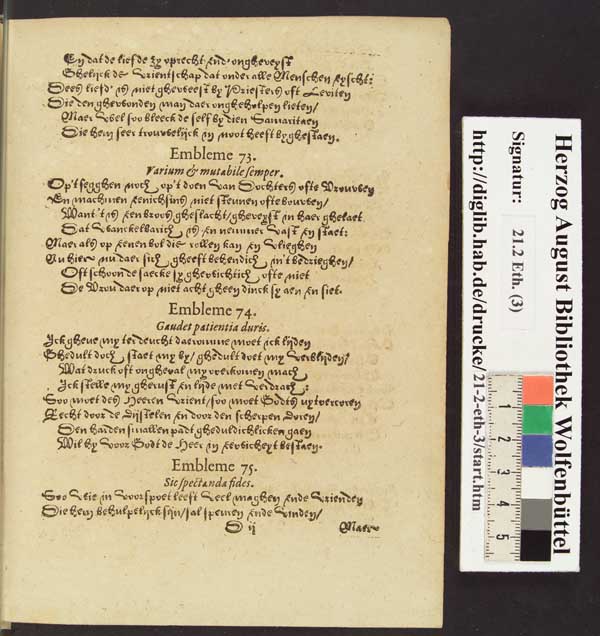 En dat de liefde zy oprecht ende ongheveyst
Ghelijck de Vrientschap dat onder alle Menschen eyscht:
Dees liefd' is niet gheweest by Priesters oft Leviten
Die den ghewonden man daer ongheholpen lieten/
Maer wel soo bleeck de self by dien Samaritaen
Die hem seer trouwelijck in noot heeft byghestaen.
Embleme 73.
Varium & mutabile semper.
Op't segghen noch op't doen van Dochters ofte Vrouwen
En mach men eenichsins niet steunen ofte bouwen/
Want 't is een broos gheslacht/gheveynst in haer ghelaet
Dat wanckelbaer is en nemmer vast en staet:
Maer als op eenen bol die rollen kan en vlieghen
Nu hier nu daer sich gheeft behendich in't bedrieghen/
Oft schoon de saecke sy ghewichtich ofte niet
De Vrou daer op niet acht gheen dinck sy aen en siet.
Embleme 74.
Gaudet patientia duris.
Ick gheve my ter deucht daeromme moet ick lijden
Ghedult doch staet my by/ ghedult doet my verblijden/
Wat druck oft ongheval my overkomen mach
Ick stelle my gherust en lijde met verdrach:
Soo moet des Heeren Vrient/soo moet Godts uytvercoren
Recht door de Distelen en door den scherpen Doren/
Den harden smallen padt gheduldichlicken gaen
Wil hy voor Godt de Heer in eewicheyt bestaen.
Embleme 75.
Sic spectanda fides.
Soo wie in voorspoet leeft veel maghen ende Vrienden
Die hem behulpelijck sijn/sal speuren ende vinden/
D ij Maer
Herzog August Bibliothek Wolfenbüttel
Signatur: 21.2 Eth. (3)
http://diglib.hab.de/drucke/21-2-eth-3/start.htm
1 2 3 4 5